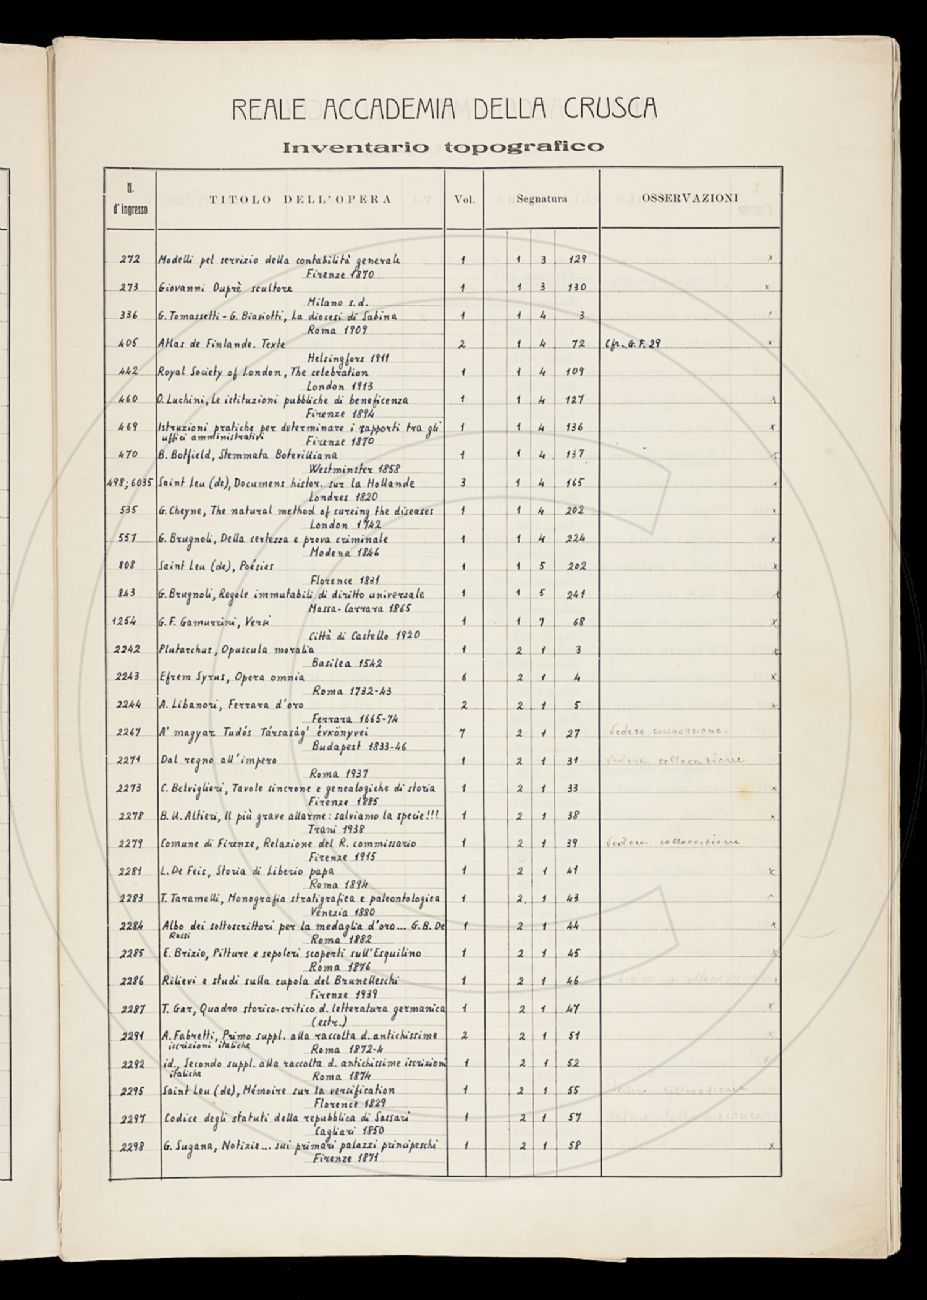 REALE ACCADEMIA DELLA CRUSCA
Inventario topografico
N. d'ingresso TITOLO DELL'OPERA Vol. Segnatura OSSERVAZIONI
272 Modelli pel servizio della contabilità generale 1 1 3 129 x
Firenze 1870
273 Giovanni Duprè scultore 1 1 3 130 x
Milano s.d.
336 G. Tomassetti - G. Biasiotti, La diocesi di Sabina 1 1 4 3 x
Roma 1909
405 Atlas de Finlande. Texte 2 1 4 72 Cfr. G.F. 29 x
Helsingfors 1911
442 Royal Society of London, The celebration 1 1 4 109
London 1913
460 O. Luchini, Le istituzioni pubbliche di beneficenza 1 1 4 127 x
Firenze 1894
469 Istruzioni pratiche per determinare i rapporti tra gli 1 1 4 136 x
uffici amministrativi Firenze 1870
470 B. Botfield, Stemmata Botevilliana 1 1 4 137 x
Westminster 1858
498; 6035 Saint Leu (de), Documens histor. sur la Hollande 3 1 4 165 x
Londres 1820
535 G. Cheyne, The natural method of cureing the diseases 1 1 4 202 x
London 1742
551 G. Brugnoli, Della certezza e prova criminale 1 1 4 224 x
Modena 1846
808 Saint Leu (de), Poésies 1 1 5 202 x
Florence 1831
843 G. Brugnoli, Regole immutabili di diritto universale 1 1 5 241 x
Massa-Carrara 1865
1254 G.F. Gamurrini, Versi 1 1 7 68 x
Città di Castello 1920
2242 Plutarchus, Opuscula moralia 1 2 1 3 x
Basilea 1542
2243 Efrem Syrus, Opera omnia 6 2 1 4 x
Roma 1732-43
2244 A. Libanori, Ferrara d'oro 2 2 1 5 x
Ferrara 1665-74
2267 A' magyar Tudós Társaság' évkönyvei 7 2 1 27 Vedere collocazione
Budapest 1833-46
2271 Dal regno all'impero 1 2 1 31 Vedere collocazione
Roma 1937
2273 C. Belviglieri, Tavole sincrone e genealogiche di storia 1 2 1 33 x
Firenze 1885
2278 B.U. Altieri, Il più grave allarme: salviamo la specie!!! 1 2 1 38 x
Trani 1938
2279 Comune di Firenze, Relazione del R. commissario 1 2 1 39 Vedere collocazione
Firenze 1915
2281 L. De Feis, Storia di Liberio papa 1 2 1 41 x
Roma 1894
2283 T. Taramelli, Monografia stratigrafica e paleontologica 1 2 1 43
Venezia 1880
2284 Albo dei sottoscrittori per la medaglia d'oro... G.B. De 1 2 1 44 x
Rossi Roma 1882
2285 E. Brizio, Pitture e sepolcri scoperti sull'Esquilino 1 2 1 45 x
Roma 1876
2286 Rilievi e studi sulla cupola del Brunelleschi 1 2 1 46
Firenze 1939
2287 T. Gar, Quadro storico-critico d. letteratura germanica 1 2 1 47 x
(estr.)
2291 A. Fabretti, Primo suppl. alla raccolta d. antichissime 2 2 1 51 x
iscrizioni italiche Roma 1872-4
2292 id., Secondo suppl. alla raccolta d. antichissime iscrizioni 1 2 1 52 x
italiche Roma 1874
2295 Saint Leu (de), Mémoire sur la versification 1 2 1 55 collocazione
Florence 1829
2297 Codice degli statuti della repubblica di Sassari 1 2 1 57
Cagliari 1850
2298 G. Sugana, Notizie... sui primari palazzi principeschi 1 2 1 58 x
Firenze 1871